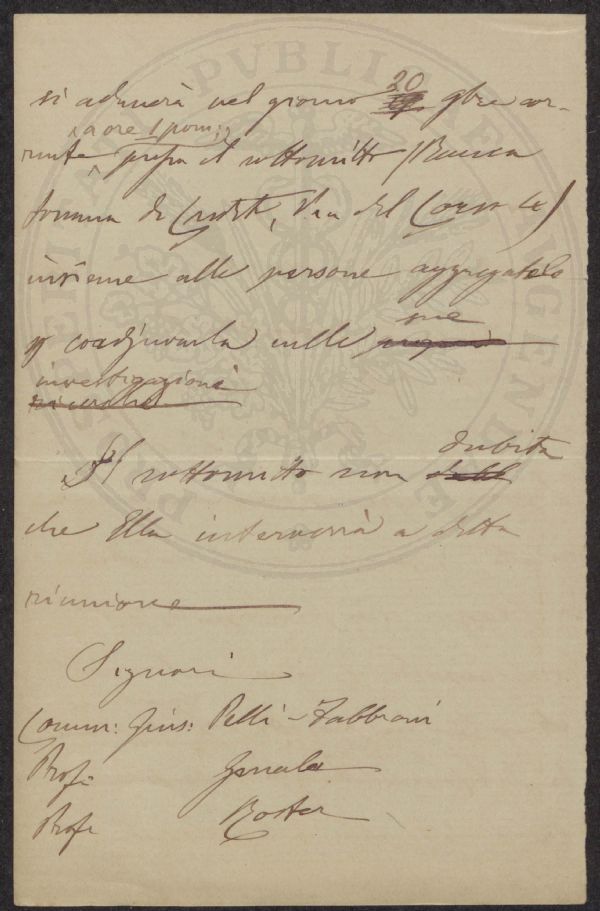 si adunerà nel giorno 20 9bre cor-
a ore 1 pom:
rente presso il sottoscritto (Banca
Toscana di Credito, Via del Corso 4)
insieme alle persone aggregatele
coadjuvarla nelle
sue
investigazioni
ricerche
Il sottoscritto non
dubita
che Ella interverrà a detta
riunione
Signori
Comm: Gius: Pelli-Fabbroni
Prof.
Prof. Roster